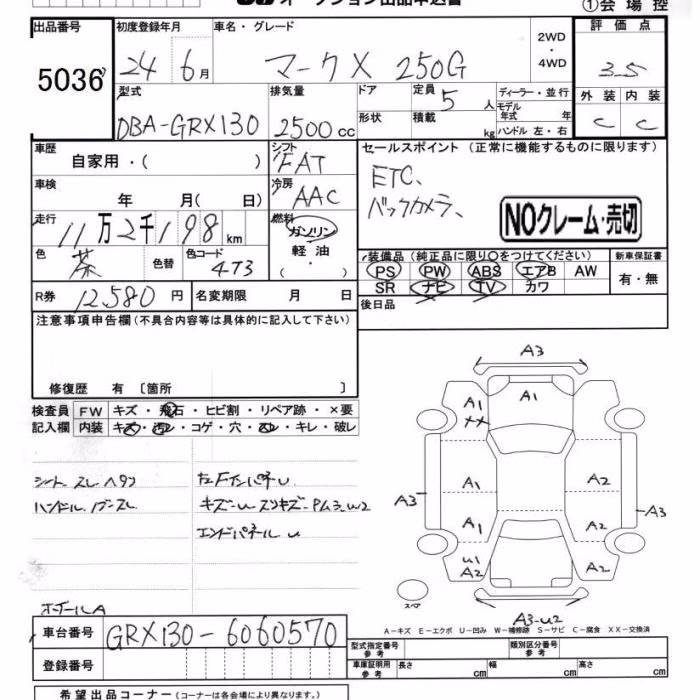 オークション出品申込書
①会場控
出品番号 初度登録年月 車名・グレード 2WD・4WD 評価点
5036 24 6月 マークX 250G 3.5
型式 排気量 ドア 定員 5人 ディーラー・並行 外装 内装
DBA-GRX130 2500cc 形状 積載 kg モデル年式 年 ハンドル 左・右 C C
車歴 シフト セールスポイント (正常に機能するものに限ります)
自家用・( ) FAT ETC、
車検 冷房 バックカメラ、
年 月( 日) AAC
走行 燃料 NOクレーム・売切
11万2千198km ガソリン
軽油
色 茶 色替 色コード 473 ( )
装備品 (純正品に限り○をつけてください) 新車保証書
PS PW ABS エアB AW 有・無
SR ナビ TV カワ
R券 12,580円 名変期限 月 日 後日品
注意事項申告欄 (不具合内容等は具体的に記入して下さい)
修復歴 有 [箇所 ]
検査員 FW キズ・飛石・ヒビ割・リペア跡・×要
記入欄 内装 キズ・汚レ・コゲ・穴・スレ・キレ・破レ
シートスレヘタリ
ハンドル、ノブースレ
エンドパネルU
A3
A1
A1
XX
A1 A2
A3 A3
A1 A2
U1
A2 A2
スペア
A3-U2
A-キズ E-エクボ U-凹み W-補修跡 S-サビ C-腐食 XX-交換済
車台番号 GRX130-6060570
登録番号
型式指定番号 参考 類別区分番号 参考
車庫証明用 参考 長さ cm 幅 cm 高さ cm
希望出品コーナー (コーナーは各会場により異なります。)